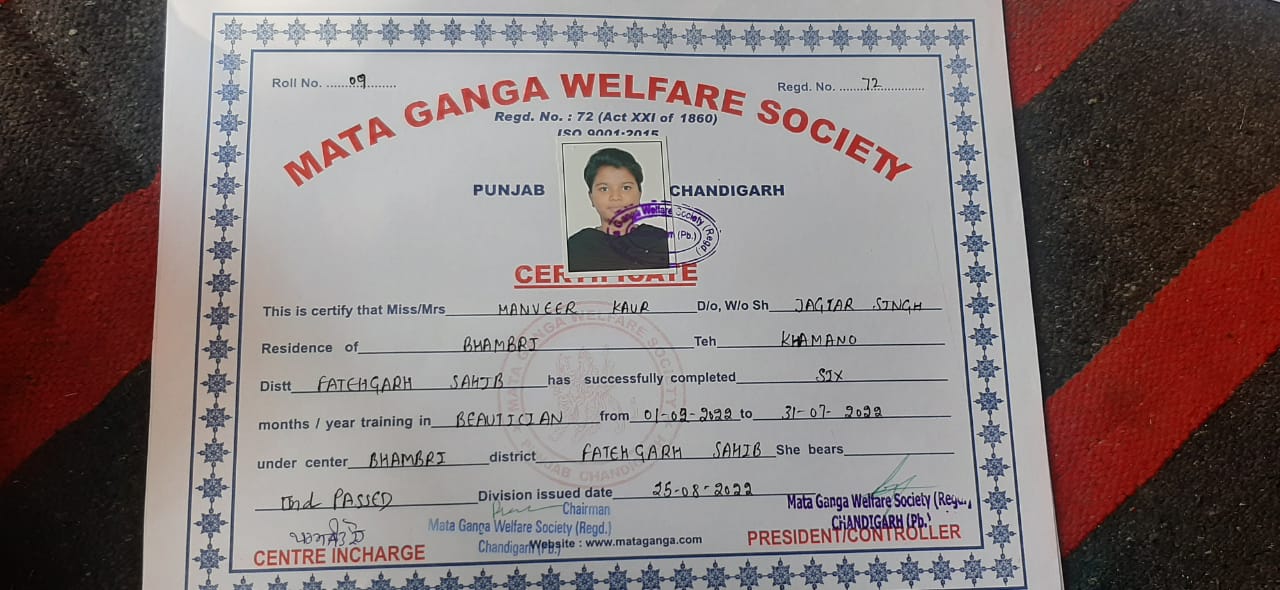 Roll No. ........09........ Regd. No. ........72............
MATA GANGA WELFARE SOCIETY
Regd. No. : 72 (Act XXI of 1860)
ISO 9001:2015
PUNJAB CHANDIGARH
Ganga Welfare Society (Regd) (Pb.)
CERTIFICATE
This is certify that Miss/Mrs MANVEER KAUR D/o, W/o Sh JAGTAR SINGH
Residence of BHAMBRI Teh KHAMANO
Distt FATEHGARH SAHIB has successfully completed SIX
months / year training in BEAUTICIAN from 01-02-2022 to 31-07-2022
under center BHAMBRI district FATEHGARH SAHIB She bears
IInd PASSED Division issued date 25-08-2022
MATA GANGA WELFARE SOCIETY PUNJAB CHANDIGARH
Chairman
Mata Ganga Welfare Society (Regd.)
Chandigarh (Pb.)
Mata Ganga Welfare Society (Regd.)
CHANDIGARH (Pb.)
CENTRE INCHARGE
Website : www.mataganga.com
PRESIDENT/CONTROLLER